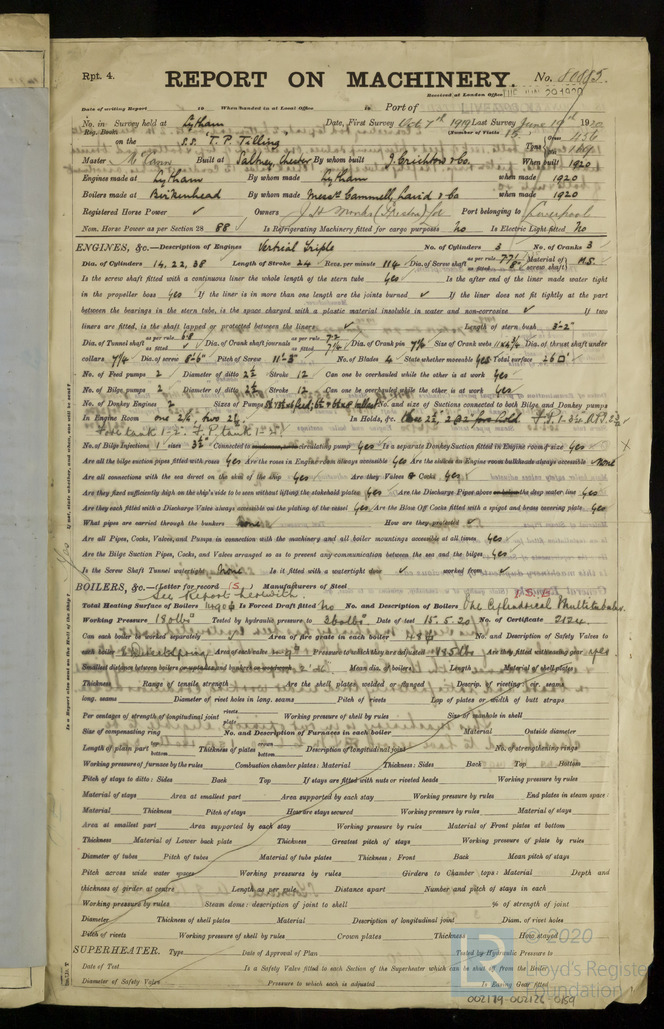 Rpt. 4.
REPORT ON MACHINERY.
No. 80685.
Received at London Office TUE. JUN. 29 1920
Date of writing Report 19 When handed in at Local Office 19 Port of LIVERPOOL
No. in Survey held at Lytham Date, First Survey Oct 7th 1919 Last Survey June 19th 1920
Reg. Book. (Number of Visits 15)
on the S.S. "T. P. Tilling" Tons Gross 456
Master Built at Saltney, Chester By whom built J. Crichton & Co. When built 1920
Engines made at Lytham By whom made Lytham when made 1920
Boilers made at Birkenhead By whom made Messrs Cammell, Laird & Co when made 1920
Registered Horse Power ✓ Owners Port belonging to Liverpool
Nom. Horse Power as per Section 28 88 ✓ Is Refrigerating Machinery fitted for cargo purposes No Is Electric Light fitted No
ENGINES, &c.—Description of Engines Vertical Triple No. of Cylinders 3 No. of Cranks 3
Dia. of Cylinders 14, 22, 38 Length of Stroke 24 Revs. per minute 114 Dia. of Screw shaft as per rule as fitted Material of screw shaft) M.S.
Is the screw shaft fitted with a continuous liner the whole length of the stern tube Yes Is the after end of the liner made water tight
in the propeller boss Yes If the liner is in more than one length are the joints burned ✓ If the liner does not fit tightly at the part
between the bearings in the stern tube, is the space charged with a plastic material insoluble in water and non-corrosive ✓ If two
liners are fitted, is the shaft lapped or protected between the liners ✓ Length of stern bush 3'-2"
Dia. of Tunnel shaft as per rule 6.8 as fitted ✓ Dia. of Crank shaft journals as per rule 7.2 as fitted 7¼ Dia. of Crank pin Size of Crank webs Dia. of thrust shaft under
collars 7¼ Dia. of screw 8'-6" Pitch of Screw 11'-3" No. of Blades 4 State whether moveable Yes Total surface 26 □'
No. of Feed pumps 2 Diameter of ditto 2½ Stroke 12 Can one be overhauled while the other is at work Yes
No. of Bilge pumps 2 Diameter of ditto 2½ Stroke 12 Can one be overhauled while the other is at work Yes
No. of Donkey Engines 2 Sizes of Pumps No. and size of Suctions connected to both Bilge and Donkey pumps
In Engine Room one 2½, two 2½ In Holds, &c.
No. of Bilge Injections 1 sizes 3½" Connected to circulating pump Yes Is a separate Donkey Suction fitted in Engine room & size Yes
Are all the bilge suction pipes fitted with roses Yes Are the roses in Engine room always accessible Yes Are the sluices on Engine room bulkheads always accessible None
Are all connections with the sea direct on the skin of the ship Yes Are they Valves or Cocks Yes
Are they fixed sufficiently high on the ship's side to be seen without lifting the stokehold plates Yes Are the Discharge Pipes above or below the deep water line Yes
Are they each fitted with a Discharge Valve always accessible on the plating of the vessel Yes Are the Blow Off Cocks fitted with a spigot and brass covering plate Yes
What pipes are carried through the bunkers None How are they protected ✓
Are all Pipes, Cocks, Valves, and Pumps in connection with the machinery and all boiler mountings accessible at all times Yes
Are the Bilge Suction Pipes, Cocks, and Valves arranged so as to prevent any communication between the sea and the bilges Yes
Is the Screw Shaft Tunnel watertight None Is it fitted with a watertight door ✓ worked from ✓
BOILERS, &c.—(Letter for record (S) ) Manufacturers of Steel
See Report herewith.
Total Heating Surface of Boilers Is Forced Draft fitted No No. and Description of Boilers One Cylindrical Multitubular
Working Pressure 180 lbs Tested by hydraulic pressure to 360 lbs Date of test 15.5.20 No. of Certificate 2124
Can each boiler be worked separately ✓ Area of fire grate in each boiler No. and Description of Safety Valves to
each boiler 2 Direct Spring Area of each valve Pressure to which they are adjusted 185 lbs Are they fitted with easing gear Yes
Smallest distance between boilers or uptakes and bunkers or woodwork Mean dia. of boilers Length Material of shell plates
Thickness Range of tensile strength Are the shell plates welded or flanged Descrip. of riveting: cir. seams
long. seams Diameter of rivet holes in long. seams Pitch of rivets Lap of plates or width of butt straps
Per centages of strength of longitudinal joint rivets plate Working pressure of shell by rules Size of manhole in shell
Size of compensating ring No. and Description of Furnaces in each boiler Material Outside diameter
Length of plain part top bottom Thickness of plates crown bottom Description of longitudinal joint No. of strengthening rings
Working pressure of furnace by the rules Combustion chamber plates: Material Thickness: Sides Back Top Bottom
Pitch of stays to ditto: Sides Back Top If stays are fitted with nuts or riveted heads Working pressure by rules
Material of stays Area at smallest part Area supported by each stay Working pressure by rules End plates in steam space:
Material Thickness Pitch of stays How are stays secured Working pressure by rules Material of stays
Area at smallest part Area supported by each stay Working pressure by rules Material of Front plates at bottom
Thickness Material of Lower back plate Thickness Greatest pitch of stays Working pressure of plate by rules
Diameter of tubes Pitch of tubes Material of tube plates Thickness: Front Back Mean pitch of stays
Pitch across wide water spaces Working pressures by rules Girders to Chamber tops: Material Depth and
thickness of girder at centre Length as per rule Distance apart Number and pitch of stays in each
Working pressure by rules Steam dome: description of joint to shell % of strength of joint
Diameter Thickness of shell plates Material Description of longitudinal joint Diam. of rivet holes
Pitch of rivets Working pressure of shell by rules Crown plates Thickness How stayed
SUPERHEATER. Type Date of Approval of Plan Tested by Hydraulic Pressure to
Date of Test Is a Safety Valve fitted to each Section of the Superheater which can be shut off from the Boiler
Diameter of Safety Valve Pressure to which each is adjusted Is Easing Gear fitted
© 2020
Lloyd's Register
Foundation
002179-002126-0159